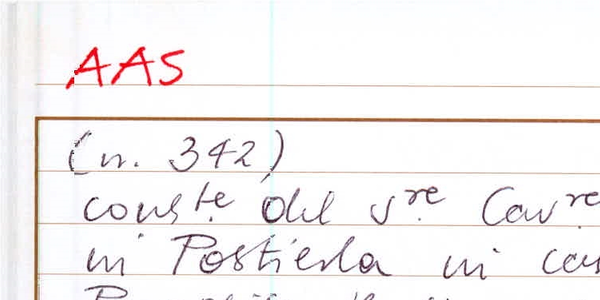 AAS
(n. 342)
cons.te del s.re Cav.re
in Postierla in cas